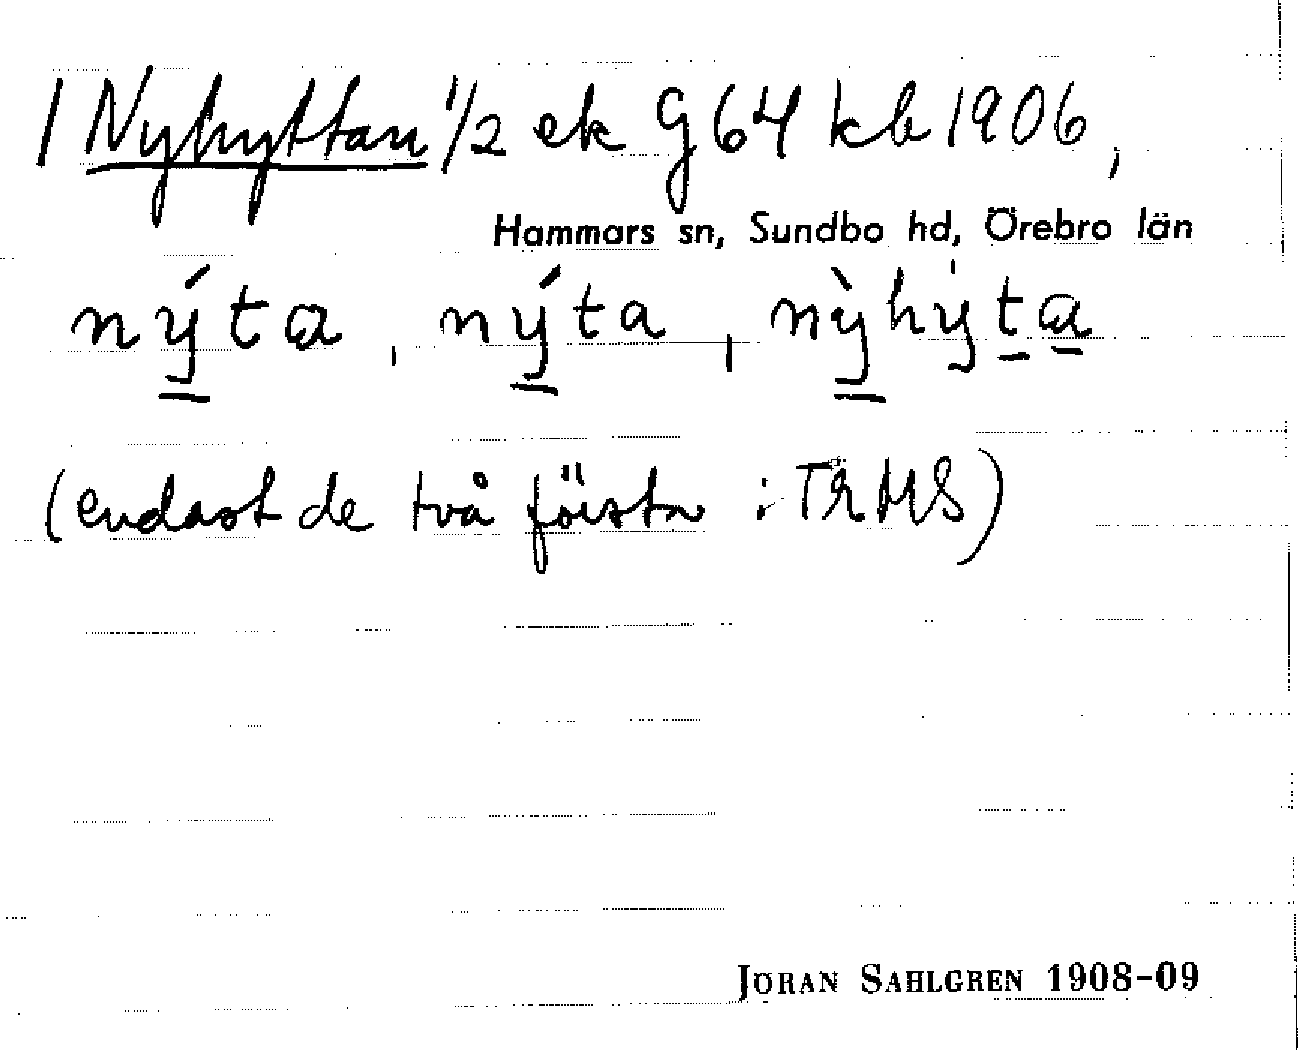 1 Nyhyttan 1/2 ek G64 kb 1906,
Hammars sn, Sundbo hd, Örebro län
nýta, nýta, nỳhýta
(endast de två första i TRMS)
JÖRAN SAHLGREN 1908-09